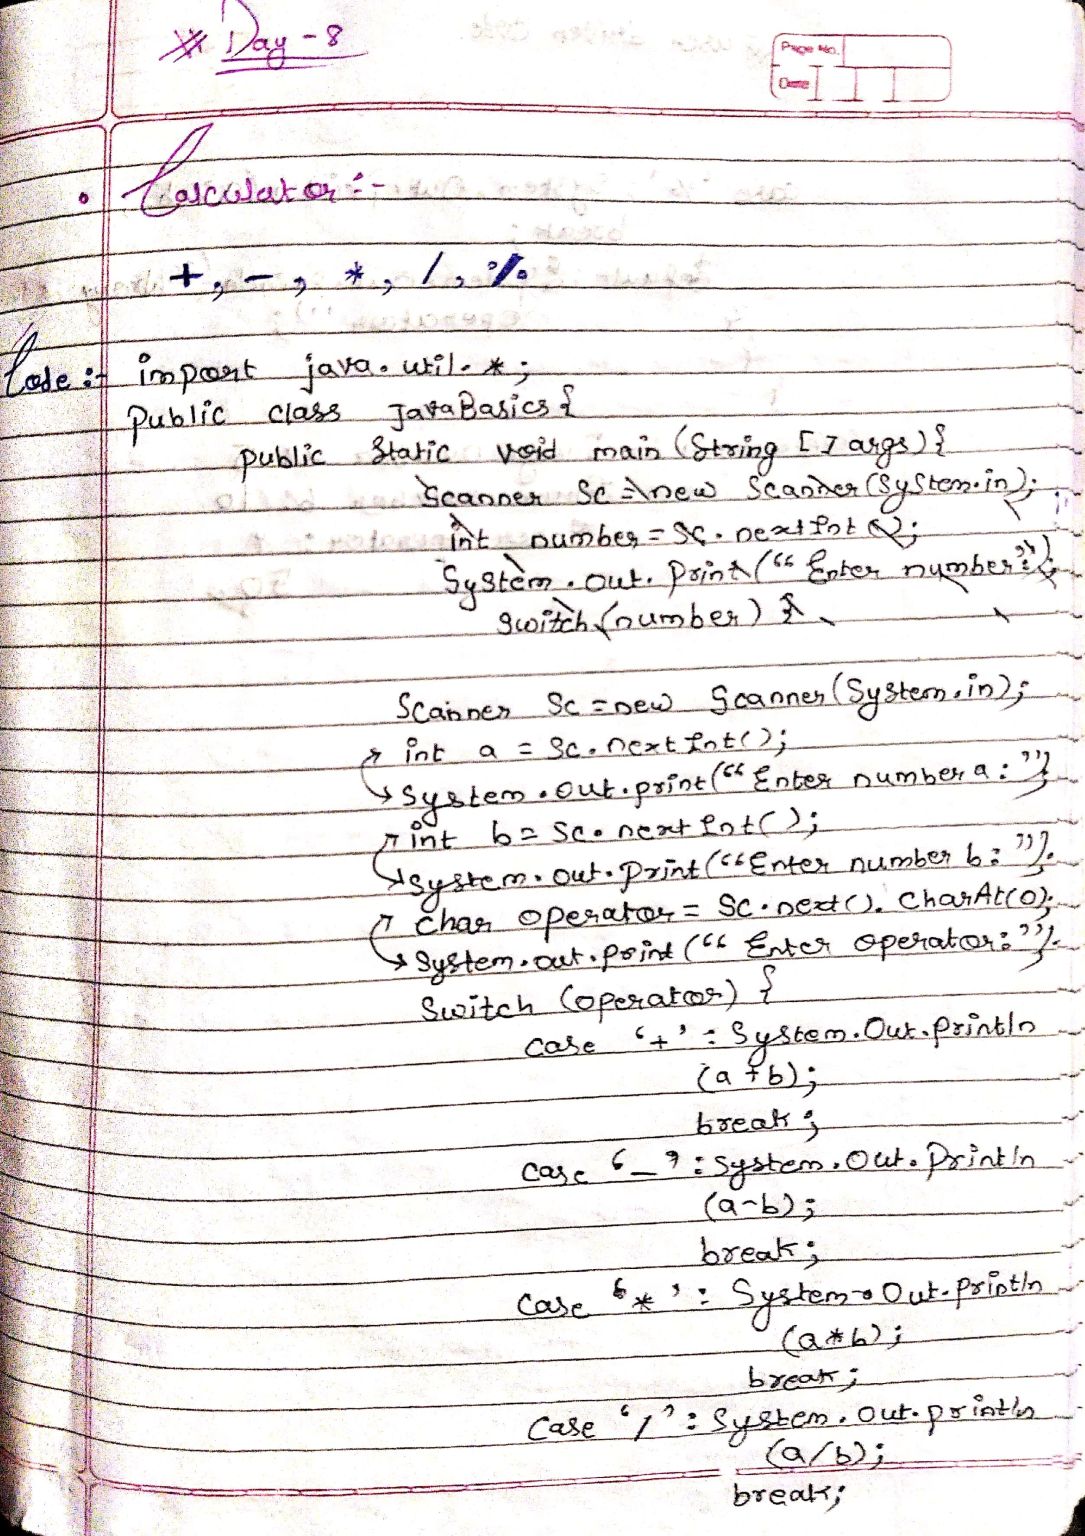 Day - 8
Page No.
Date
• Calculator :-
+, -, *, /, %
Code :- import java.util.*;
Public class JavaBasics {
public static void main (String [] args) {
Scanner Sc = new Scanner (System.in);
int number = Sc.nextInt();
System.out.Print("Enter number:");
switch (number) {
Scanner Sc = new Scanner (System.in);
int a = Sc.nextInt();
System.out.print("Enter number a:");
int b = Sc.nextInt();
System.out.Print("Enter number b:");
char operator = Sc.next().CharAt(0);
System.out.print("Enter operator:");
Switch (operator) {
case '+' : System.Out.println
(a+b);
break;
Case '-' : System.Out.Println
(a-b);
break;
Case '*' : System.Out.println
(a*b);
break;
Case '/' : System.out.println
(a/b);
break;